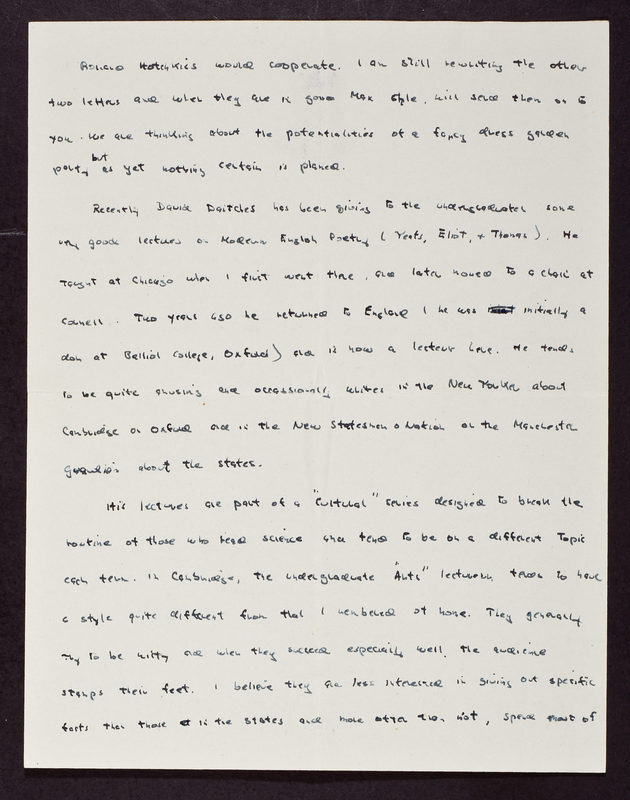 Rollin Hotchkiss would cooperate. I am still rewriting the other
two letters and when they are in good Max style, will send them on to
you. We are thinking about the potentialities of a fancy dress garden
party but as yet nothing certain is planed.
Recently David Daitches has been giving to the undergraduates some
very good lectures on Modern English Poetry (Yeats, Eliot, + Thomas). He
taught at Chicago when I first went there, and later moved to a chair at
Cornell. Two years ago he returned to England (he was initially a
don at Balliol College, Oxford) and is now a lecturer here. He tends
to be quite amusing and occassionally writes in the New Yorker about
Cambridge or Oxford and in the New Statesman & Nation or the Manchester
Guardian about the states.
His lectures are part of a "cultural" series designed to break the
routine of those who read science and tend to be on a different topic
each term. In Cambridge, the undergraduate "Arts" lecturers tend to have
a style quite different from that I remembered at home. They generally
try to be witty and when they succeed especially well, the audience
stamps their feet. I believe they are less interested in giving out specific
facts than those in the States and more often than not, spend most of